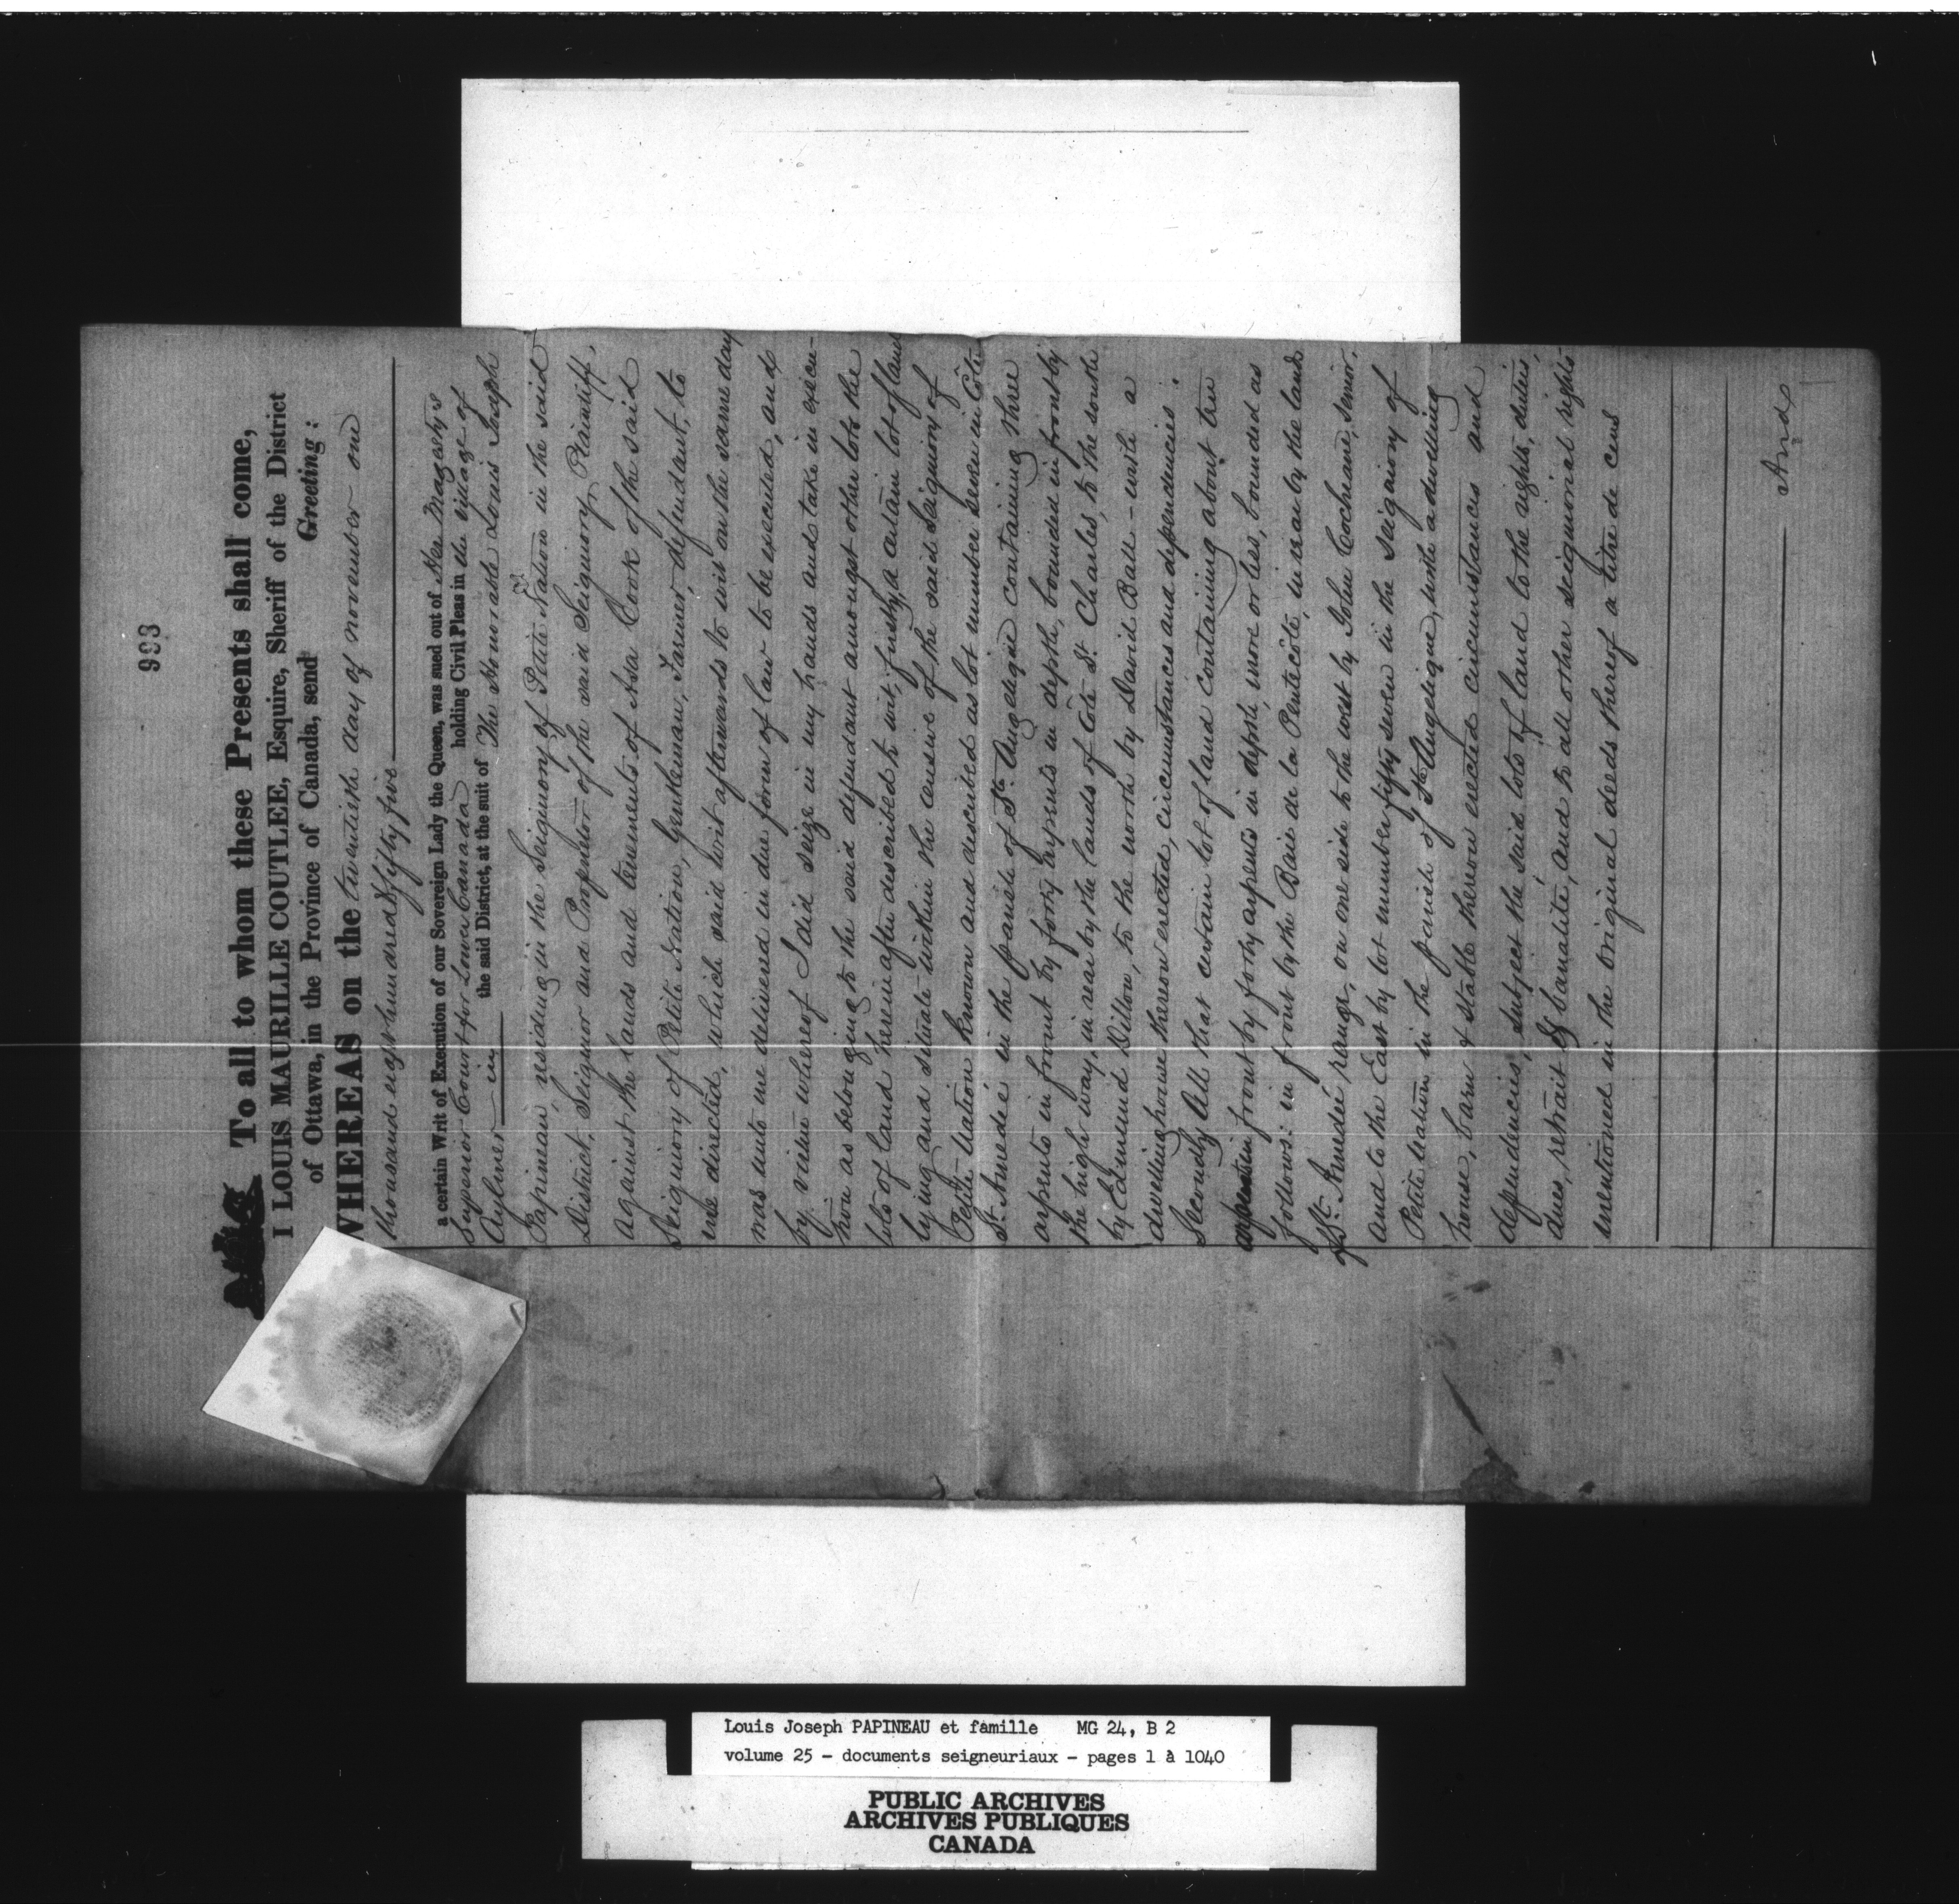 993
To all to whom these Presents shall come,
I LOUIS MAURILLE COUTLEE, Esquire, Sheriff of the District
of Ottawa, in the Province of Canada, send Greeting :
WHEREAS on the twentieth day of november one
thousand eight hundred & fifty five
a certain Writ of Execution of our Sovereign Lady the Queen, was sued out of Her Magesty's
Superior Court for Lower Canada holding Civil Pleas in the village of
Aylmer in the said District, at the suit of The Honorable Louis Joseph
Papineau, residing in the Seigniory of Petite Nation in the said
District, Seignior and Proprietor of the said Seigniory, Plaintiff,
against the lands and tenements of Asa Cook of the said
Seigniory of Petite Nation, Gentleman, Farmer, defendant, to
me directed, which said writ afterwards to wit on the same day
was unto me delivered in due form of law to be executed, and
by virtue whereof I did seize in my hands and take in execu-
tion as belonging to the said defendant amongst other lots the
lots of land herein after described to wit, firstly, a certain lot of land
lying and situate within the censive of the said Seigniory of
Petite Nation known and described as lot number seven in Côte
St. Amedée in the parish of Ste. Angelique containing three
arpents in front by forty arpents in depth, bounded in front by
the high way, in rear by the lands of Côte St. Charles, to the south
by Edmund Dillon, to the north by David Ball - with a
dwelling house thereon erected, circumstances and dependencies.
Secondly All that certain lot of land containing about two
in front by forty arpents in depth, more or less, bounded as
follows: in front by the Baie de la Pentecôte, in rear by the lands
of St. Amedée range, on one side to the west by John Cochrane, senior,
and to the East by lot number fifty seven in the Seigniory of
Petite Nation in the parish of Ste Angelique, with a dwelling
house, barn & stable thereon erected circumstances and
dependencies, subject the said lots of land to the rights, duties,
dues, retrait & banalité, and to all other seigniorial rights
mentioned in the original deeds thereof a titre de cens
And
Louis Joseph PAPINEAU et famille MG 24, B 2
volume 25 - documents seigneuriaux - pages 1 à 1040
PUBLIC ARCHIVES
ARCHIVES PUBLIQUES
CANADA